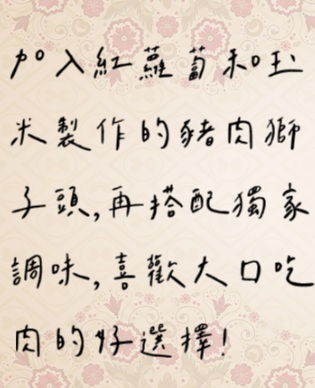 加入紅蘿蔔和玉
米製作的豬肉獅
子頭,再搭配獨家
調味,喜歡大口吃
肉的好選擇!